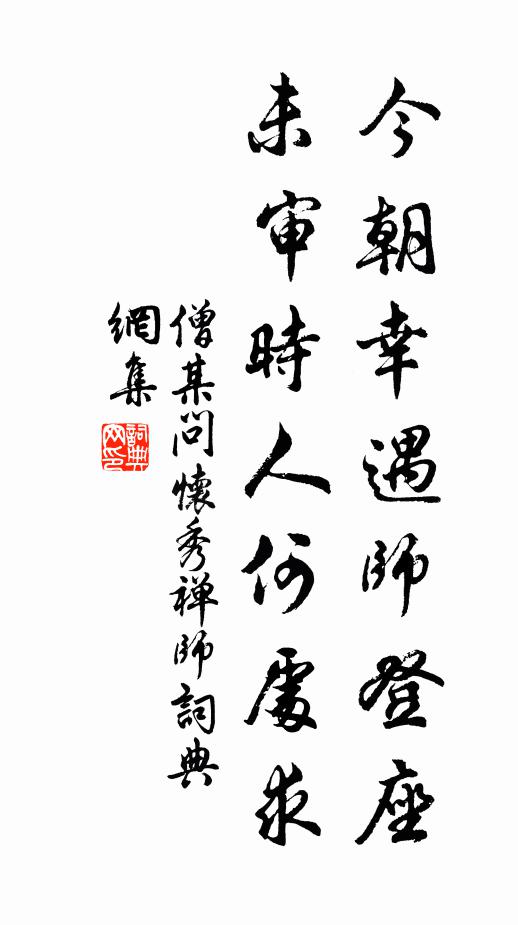 今朝幸遇師登座
未审時人何處求
僧某問懷秀禅師詞典
網集
詞典
网印